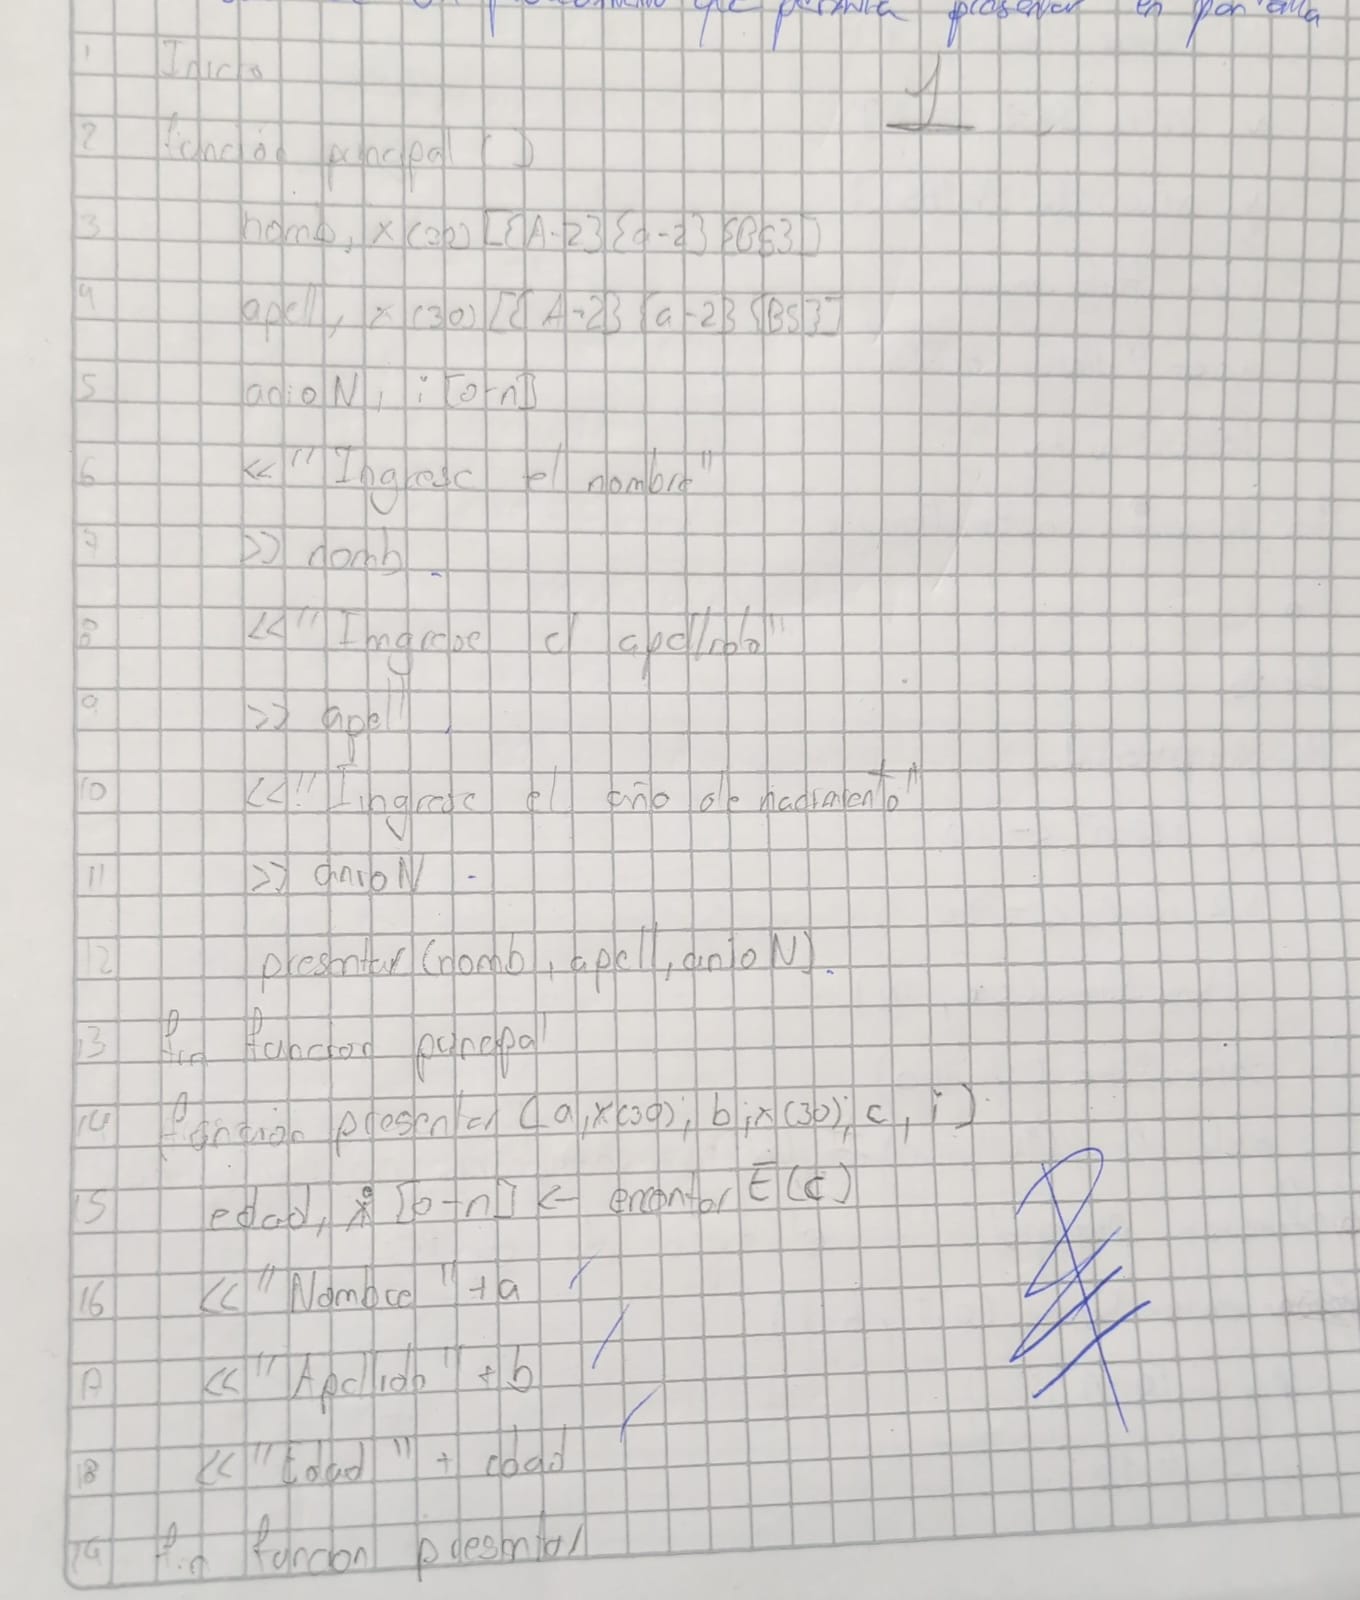 un que permita presentar en pantalla
1
1 Inicio
2 función principal ( )
3 nomb, x(30) [{A-Z}{a-z}{BS}]
4 apell, x(30) [{A-Z}{a-z}{BS}]
5 anioN, i [0-n]
6 << "Ingrese el nombre"
7 >> nomb
8 << "Imgrese el apellido"
9 >> apell
10 << "Ingrese el año de nacimiento"
11 >> anioN
12 presentar (nomb, apell, anioN).
13 fin funcion principal
14 función presentar (a,x(30); b,x(30); c, i)
15 edad, i [0-n] <- encontarE(c)
16 << "Nombre" + a
17 << "Apellido" + b
18 << "Edad" + edad
19 fin funcion presentar